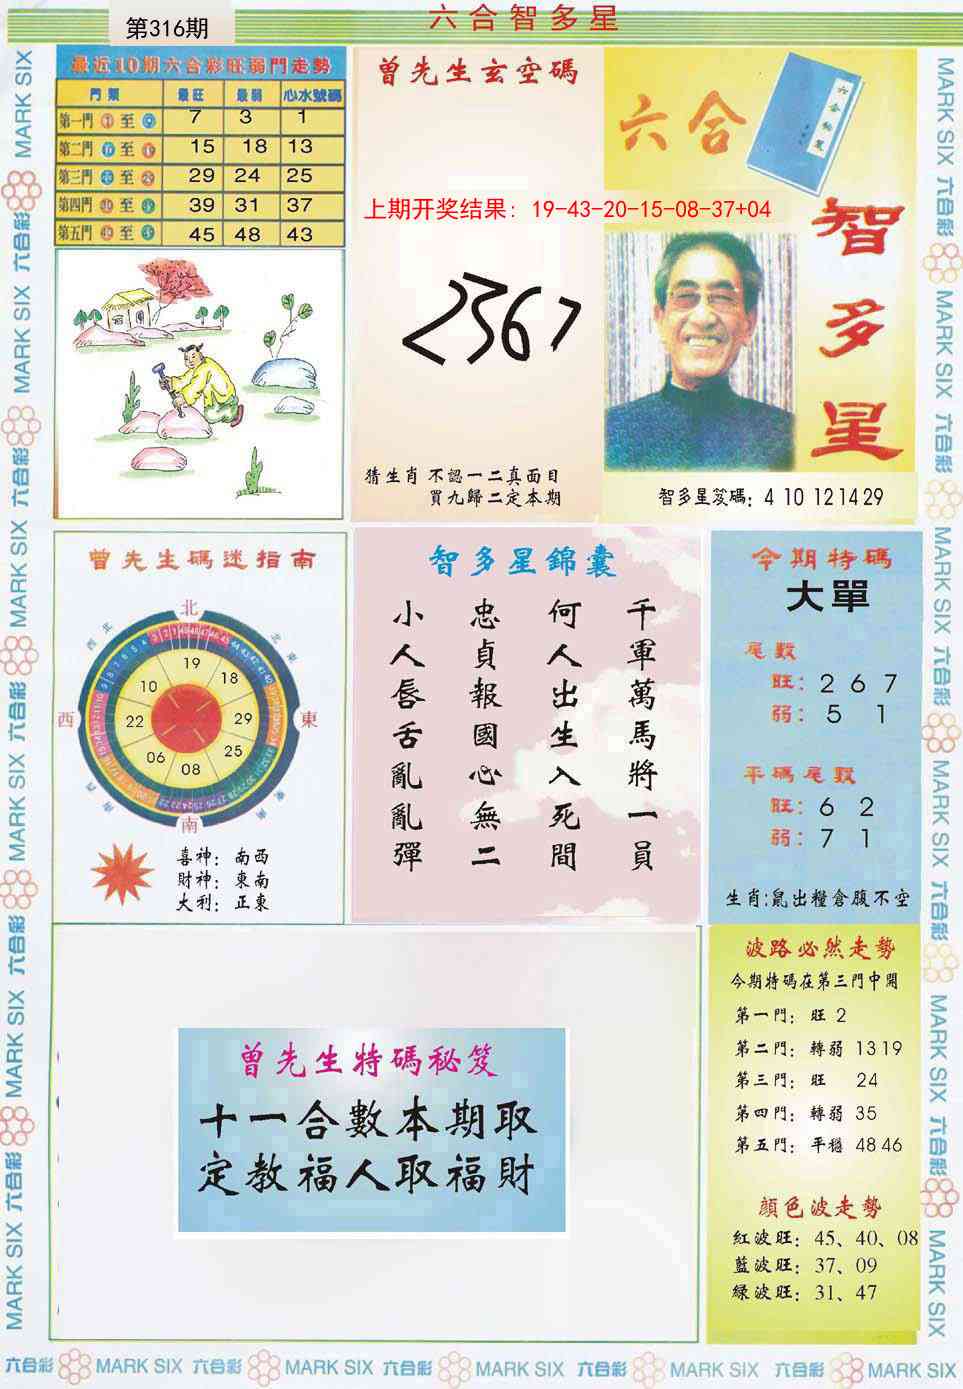 第316期
六合智多星
最近10期六合彩旺弱門走勢
門類 最旺 最弱 心水號碼
第一門 至 7 3 1
第二門 至 15 18 13
第三門 至 29 24 25
第四門 至 39 31 37
第五門 至 45 48 43
曾先生玄空碼
上期开奖结果: 19-43-20-15-08-37+04
2367
猜生肖 不認一二真面目
買九歸二定本期
六合
智多星
智多星笈碼: 4 10 12 14 29
曾先生碼迷指南
北
西北
東北
西
東
南
19
18
29
25
08
06
22
10
喜神: 南西
財神: 東南
大利: 正東
智多星錦囊
千軍萬馬將一員
何人出生入死間
忠貞報國心無二
小人唇舌亂亂彈
今期特碼
大單
尾數
旺: 2 6 7
弱: 5 1
平碼尾數
旺: 6 2
弱: 7 1
生肖:鼠出糧倉腹不空
曾先生特碼秘笈
十一合數本期取
定教福人取福財
波路必然走勢
今期特碼在第三門中開
第一門: 旺 2
第二門: 轉弱 13 19
第三門: 旺 24
第四門: 轉弱 35
第五門: 平穩 48 46
顔色波走勢
紅波旺: 45、40、08
藍波旺: 37、09
緑波旺: 31、47
六合彩 MARK SIX 六合彩 MARK SIX 六合彩 MARK SIX 六合彩 MARK SIX 六合彩 MARK SIX